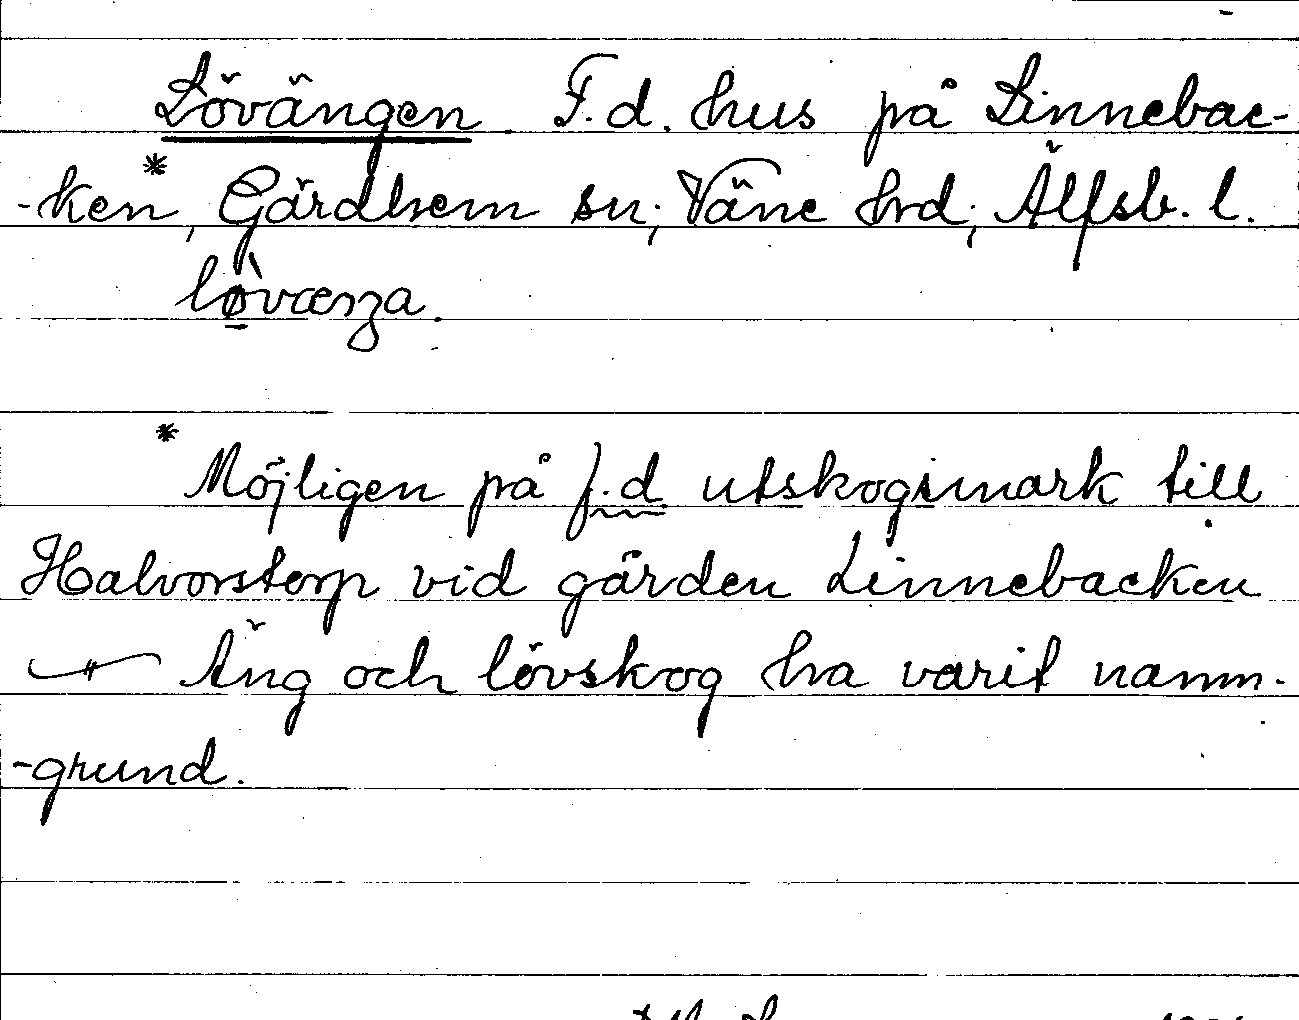 Lövängen. F.d. hus på Linnebac-
-ken*, Gärdhem sn; Väne hrd; Älfsb. l.
lø̀væŋa.
* Möjligen på f.d utskogsmark till
Halvorstorp vid gården Linnebacken
Äng och lövskog ha varit namn-
-grund.